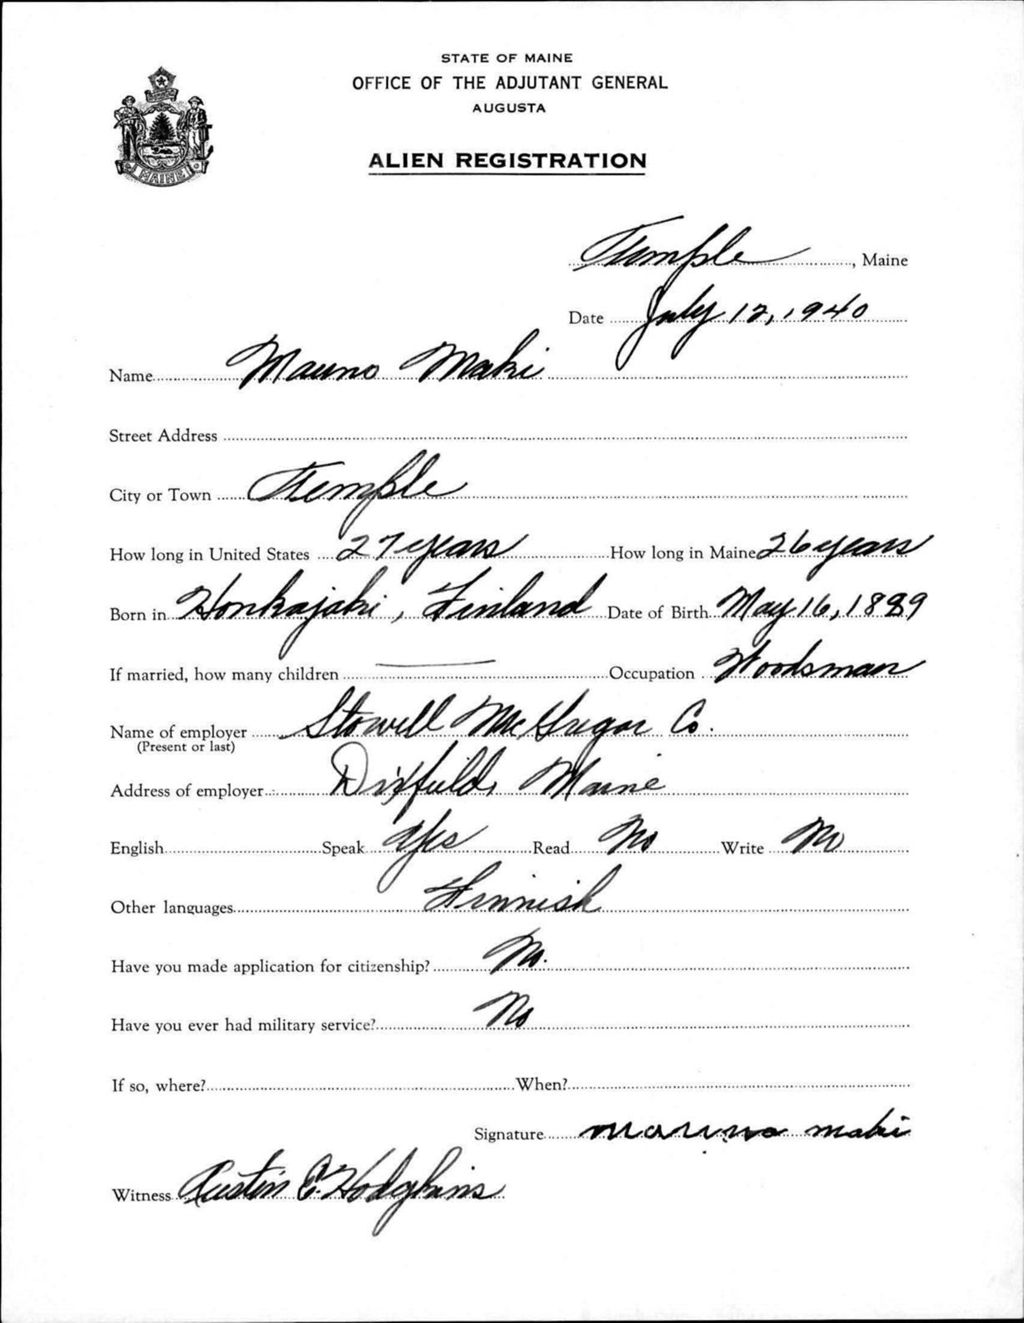 STATE OF MAINE
OFFICE OF THE ADJUTANT GENERAL
AUGUSTA
ALIEN REGISTRATION
MAINE
Temple, Maine
Date July 12, 1940
Name Mauno Maki
Street Address
City or Town Temple
How long in United States 27 years How long in Maine 26 years
Born in Honkajaki, Finland Date of Birth May 16, 1889
If married, how many children Occupation Woodsman
Name of employer Stowell McGregor Co.
(Present or last)
Address of employer Dixfield, Maine
English Speak Yes Read No Write No
Other languages Finnish
Have you made application for citizenship? No.
Have you ever had military service? No
If so, where? When?
Signature mauno maki
Witness Austin E. Hodgkins